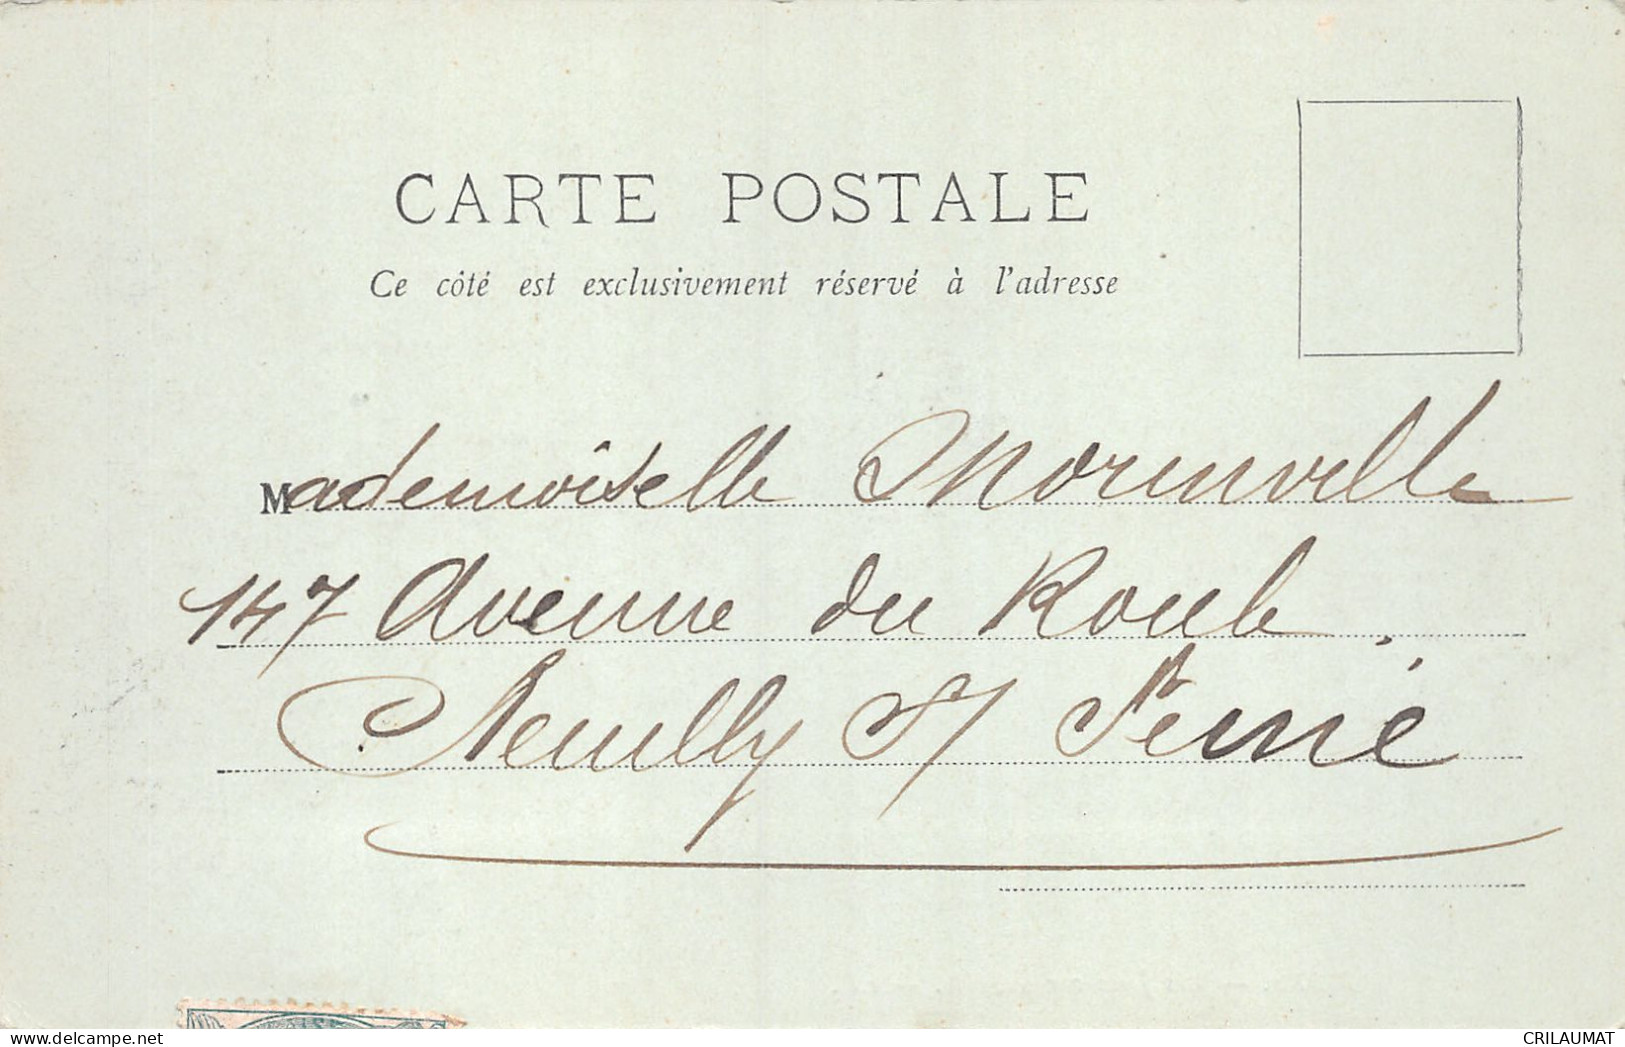 CARTE POSTALE
Ce côté est exclusivement réservé à l'adresse
Mademoiselle Morinville
147 Avenue du Roule
Neuilly s/ Seine
delcampe.net
CRILAUMAT